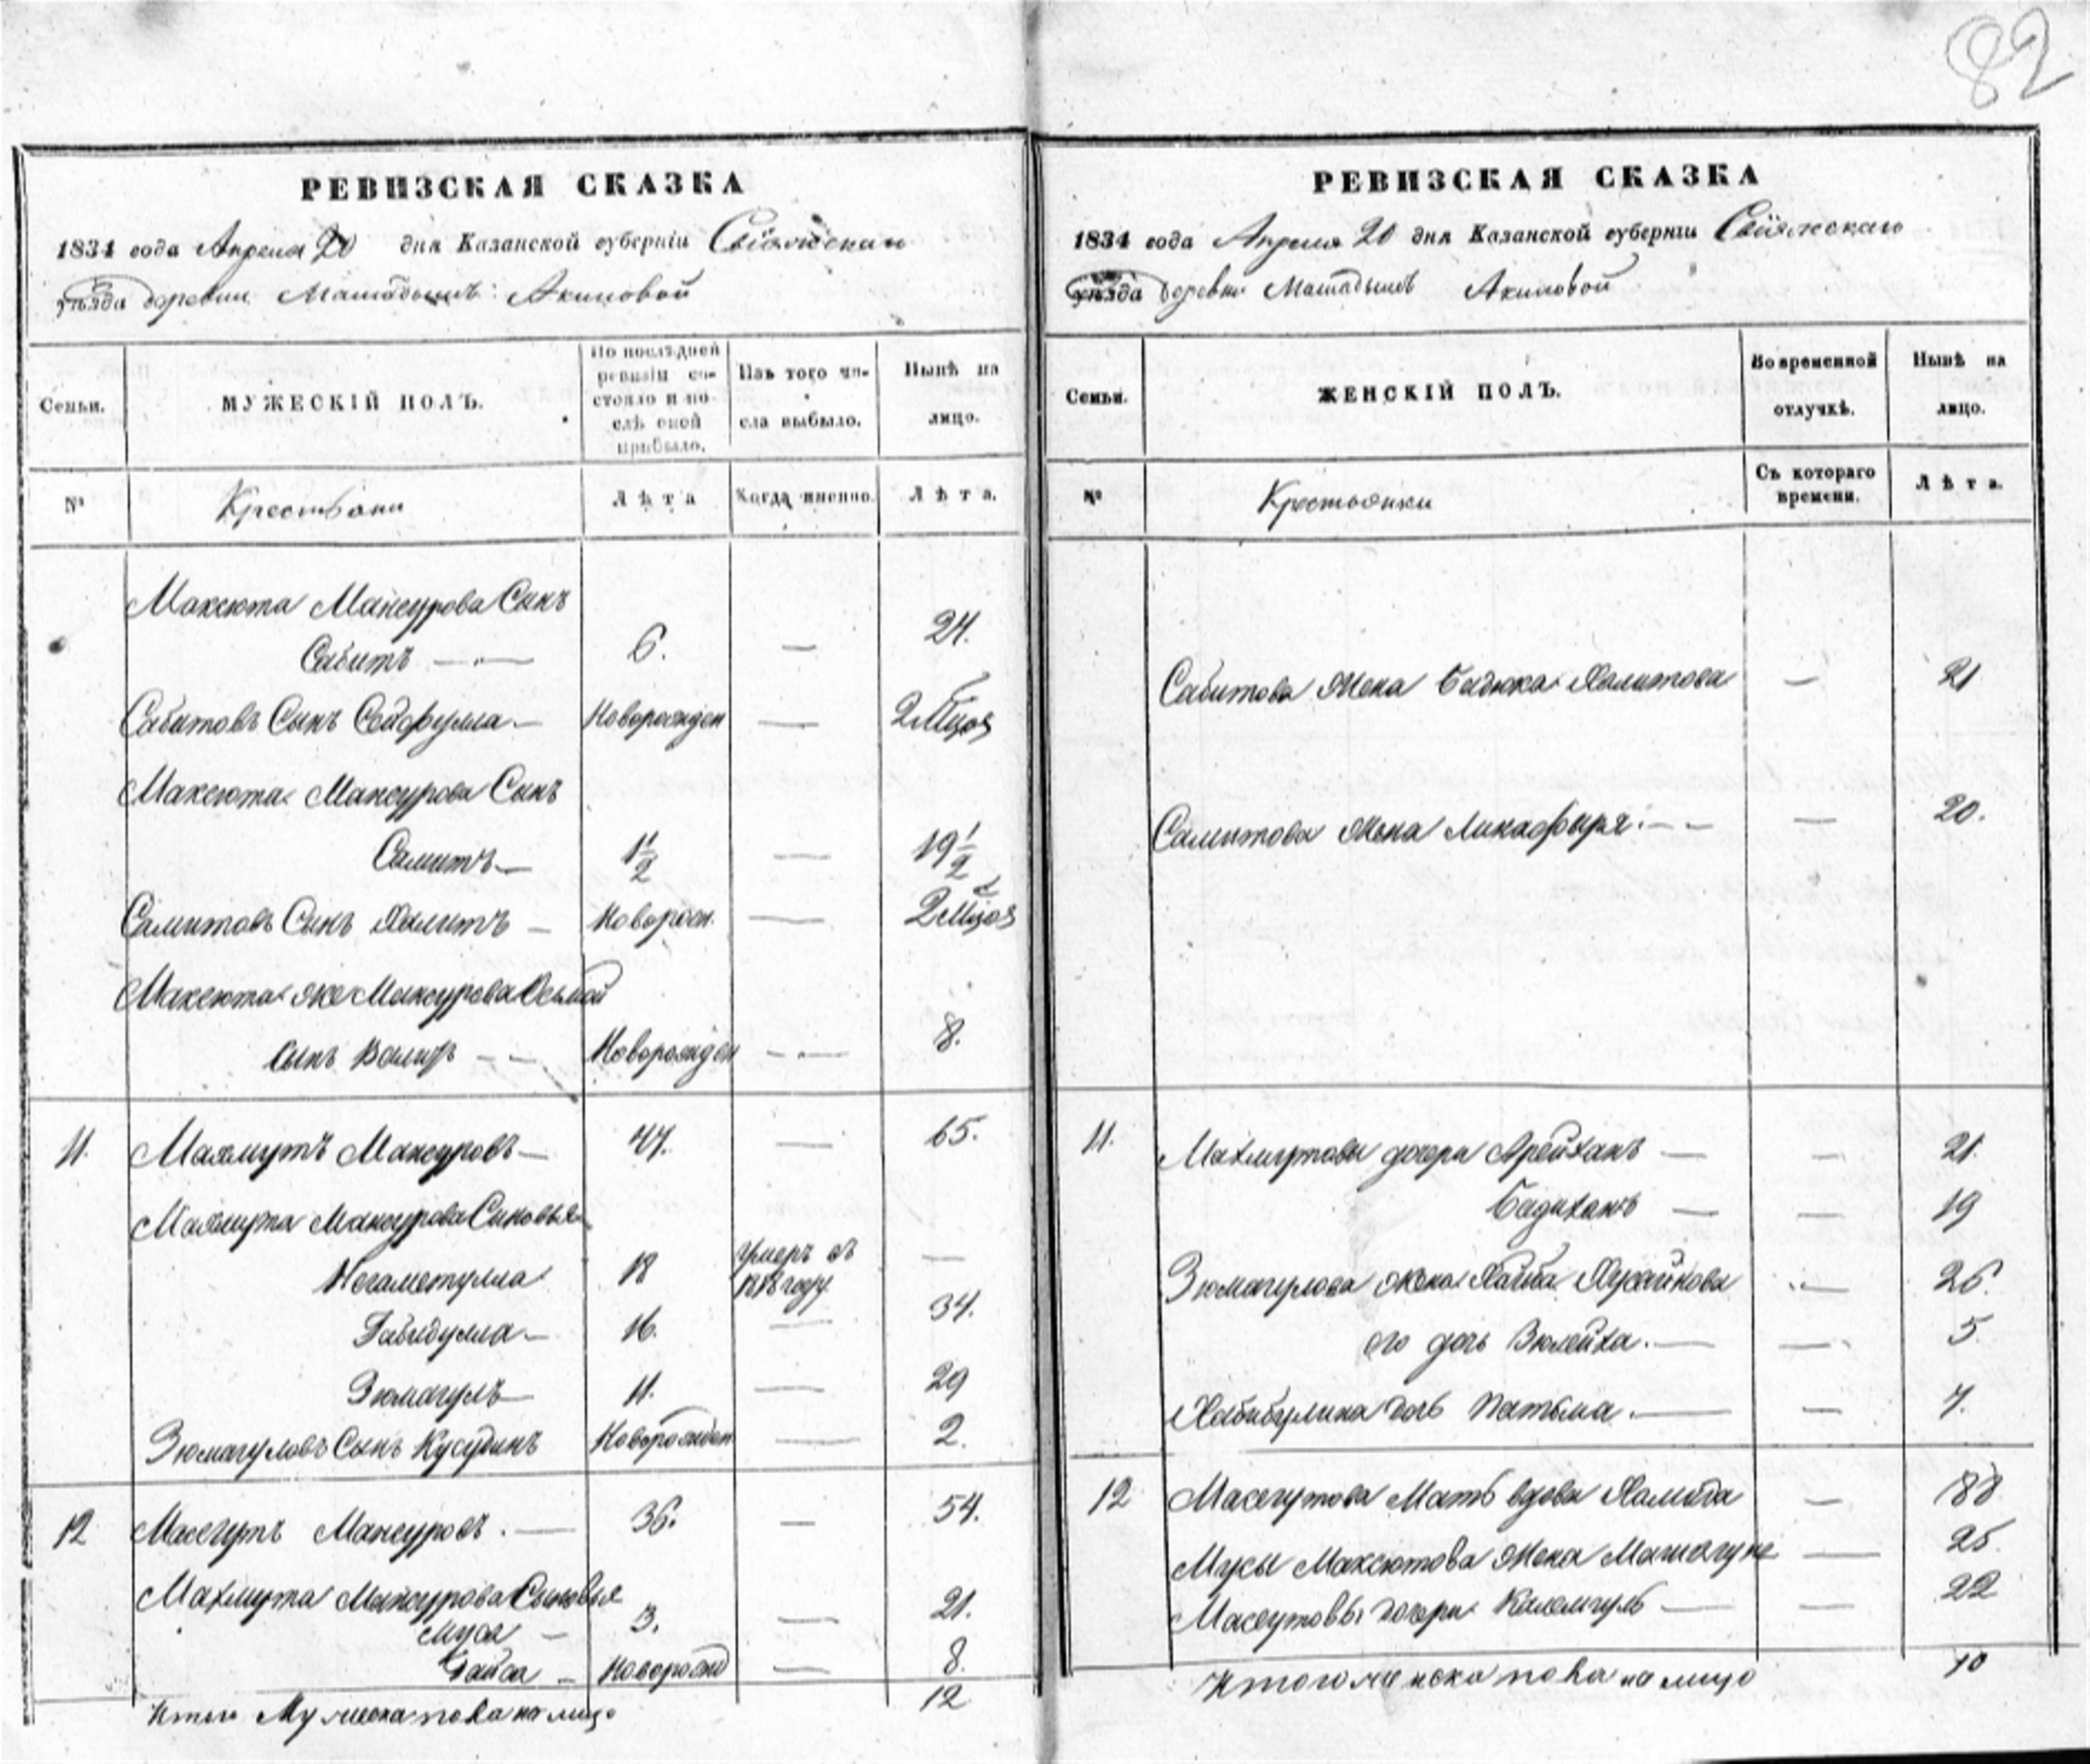 82
РЕВИЗСКАЯ СКАЗКА
1834 года Апреля 20 дня Казанской губерніи Свіяжскаго
уѣзда деревни Матадышъ Акиповой
Семьи.
МУЖЕСКІЙ ПОЛЪ.
По послѣдней ревизіи состояло и послѣ оной прибыло.
Изъ того числа выбыло.
Нынѣ на лицо.
№
Крестьяни
Лѣта
Когда именно.
Лѣта.
Максюта Мансурова Сынъ
Сабитъ — 6. — 24.
Сабитовъ Сынъ Сейфулла — Новорожден — 2 Мцов
Максюта Мансурова Сынъ
Самитъ — 1 1/2 — 19 1/2
Самитовъ Сынъ Халитъ — Новорож. — 2 Мцов
Максюта же Мансурова
Сынъ — Новорожден — 8.
11. Махмутъ Мансуровъ — 47. — 65.
Махмута Мансурова Сыновья
Негаметулла 18 умеръ въ 1818 году —
Габидулла — 16. — 34.
Зюмагулъ — 11. — 29
Зюмагуловъ Сынъ Кусудинъ Новорожден — 2.
12 Масгутъ Мансуровъ. — 36. — 54.
Махмута Мансурова Сыновья
Муса — 3. — 21.
Гайса — Новорожд — 8.
Итого Мужеска пола на лицо 12
РЕВИЗСКАЯ СКАЗКА
1834 года Апреля 20 дня Казанской губерніи Свіяжскаго
уѣзда деревни Матадышъ Акиповой
Семьи.
ЖЕНСКІЙ ПОЛЪ.
Во временной отлучкѣ.
Нынѣ на лицо.
№
Крестьянки
Съ котораго времени.
Лѣта.
Сабитова Жена Бадюка Халитова — 21
Самитова Жена — 20.
11. Махмутовы дочери Арейханъ — 21.
Бадиханъ — 19
Зюмагулова жена Хусайнова — 26.
его дочь Зюлейха. — 5.
Хабибулина дочь Патьма. — 7.
12 Масгутова Мать вдова Халида — 88
Мусы Максютова Жена — 25.
Масгутовы дочери — 22
Итого женска пола на лицо 10